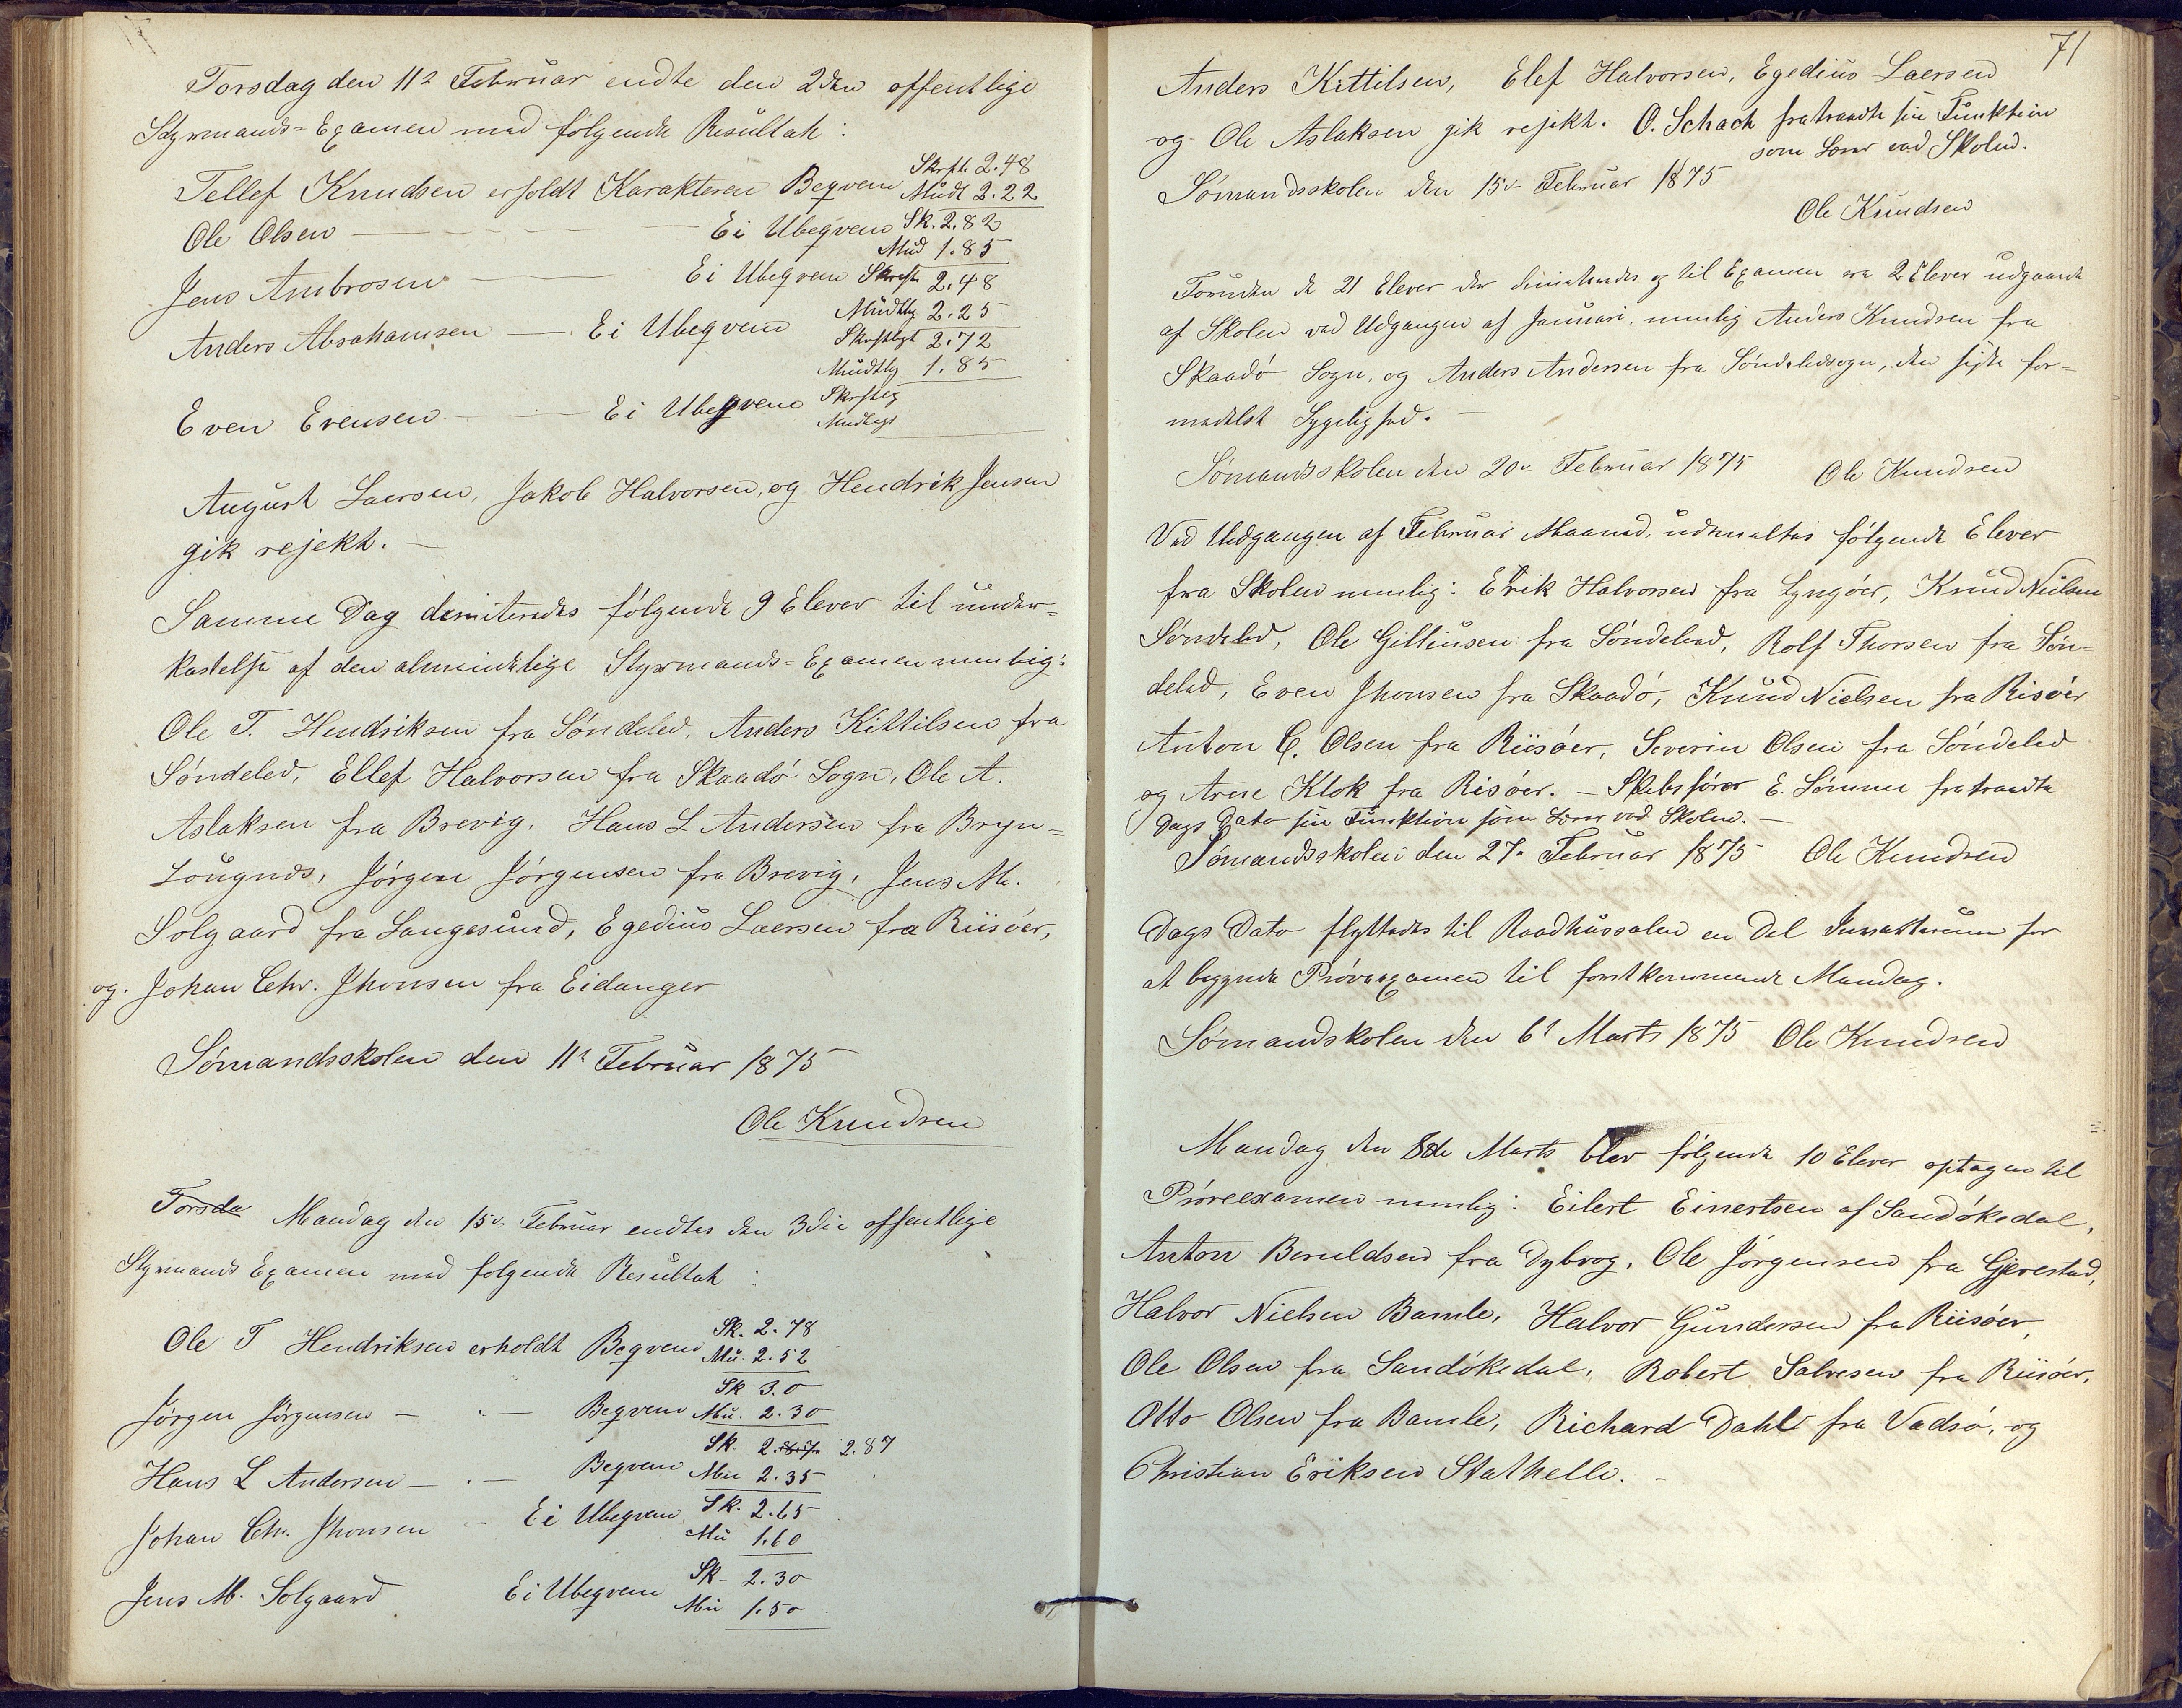 Torsdag den 11te Februar endte den 2den offentlige
Styrmands=Examen med følgende Resultat:
Tellef Knudsen erholdt Karakteren Beqvem Skrftl. 2.48
Mudt 2.22
Ole Olsen — Ei Ubeqvem Sk. 2.82
Mud 1.85
Jens Ambrosen — Ei Ubeqvem Skrftl. 2.48
Mudtlig 2.25
Anders Abrahamsen — Ei Ubeqvem Skriftligt 2.72
Mudtlig 1.85
Even Evensen — Ei Ubeqvem Skrftlig
Mudtligt
August Laersen, Jakob Halvorsen, og Hendrik Jensen
gik rejekt. —
Samme Dag demiteredes følgende 9 Elever til under=
kastelse af den almindelige Styrmands=Examen nemlig:
Ole T. Hendriksen fra Søndeled, Anders Kittilsen fra
Søndeled, Ellef Halvorsen fra Skaadø Sogn, Ole A.
Aslaksen fra Brevig, Hans L Andersen fra Bryn=
Jørgen Jørgensen fra Brevig, Jens M.
Solgaard fra Langesund, Egedius Laersen fra Riisøer,
og. Johan Chr. Jhonsen fra Eidanger
Sømandsskolen den 11te Februar 1875
Ole Knudsen
Torsda Mandag den 15de Februar endtes den 3die offentlige
Styrmands Examen med følgende Resultat:
Ole T Hendriksen erholdt Beqvem Sk. 2.78
Mu. 2.52
Jørgen Jørgensen — " — Beqvem Sk 3.0
Mu. 2.30
Hans L Andersen — " — Beqvem Sk. 2.87
Mu 2.35
Johan Chr. Jhonsen — Ei Ubeqvem Sk. 2.65
Mu 1.60
Jens M. Solgaard Ei Ubeqvem Sk- 2.30
Mu 1.50
71
Anders Kittilsen, Elef Halvorsen, Egedius Laersen
og Ole Aslaksen gik rejekt. O. Schach fratraadte sin Funktion
som Lærer ved Skolen.
Sømandsskolen den 15de Februar 1875
Ole Knudsen
Foruden de 21 Elever der dimiteredes og til Examen era 2 Elever udgaaede
af Skolen ved Udgangen af Januari, nemlig Anders Knudsen fra
Skaadø Sogn, og Anders Andersen fra Søndeledsogn, den sidste for=
medelst Sygelighed. —
Sømandsskolen den 20de Februar 1875 Ole Knudsen
Ved Udgangen af Februar Maaned, udmeldtes følgende Elever
fra Skolen nemlig: Erik Halvorsen fra Lyngøer, Knud Nielsen
Søndeled, Ole Gilliusen fra Søndeled, Rolf Thorsen fra Søn=
deled, Even Jhonsen fra Skaadø, Knud Nielsen fra Risøer
Anton C. Olsen fra Riisøer, Severin Olsen fra Søndeled
og Arne Klok fra Risøer. — Skibsfører E. Sømme fratraadte
Dags Dato sin Funktion som Lærer ved Skolen. —
Sømandsskolen den 27de Februar 1875 Ole Knudsen
Dags Dato flyttedes til Raadhussalen en Del Inventarium for
at begynde Prøveexamen til førstkommende Mandag.
Sømandskolen den 6te Marts 1875 Ole Knudsen
Mandag den 8de Marts blev følgende 10 Elever optagen til
Prøveexamen nemlig: Eilert Einertsen af Sandøkedal,
Anton Beruldsen fra Dybvog, Ole Jørgensen fra Gjerestad,
Halvor Nielsen Bamle, Halvor Gundersen fra Riisøer,
Ole Olsen fra Sandøkedal, Robert Salvesen fra Riisøer,
Otto Olsen fra Bamle, Richard Dahl fra Vadsø, og
Christian Eriksen Stathelle. —